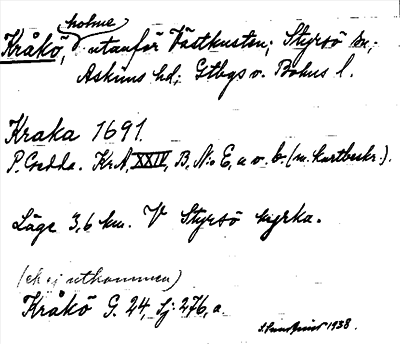 holme
Kråkö, utanför Västkusten; Styrsö sn;
Askims hd; Gtbgs o. Bohus l.
Kraka 1691.
P. Gedda. Kr.A. XXIV, B. No E, a o. b. (m. kartbeskr.).
Läge 3,6 km. V Styrsö kyrka.
(ek ej utkommen)
Kråkö G. 24, Sj: 276, a.
1938.